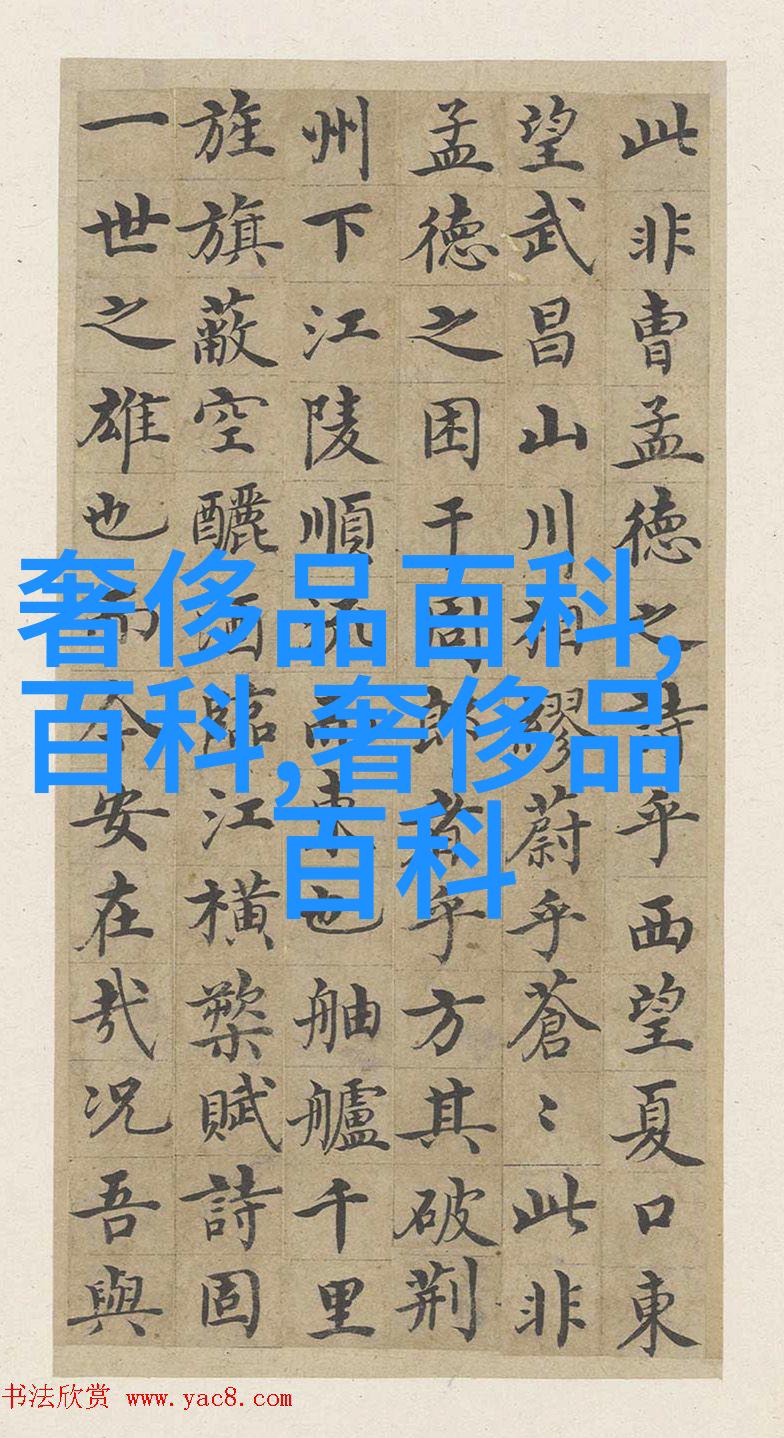 此非曹孟德之詩乎西望夏口東
望武昌山川相繆蔚乎蒼〻此非
孟德之困于周郎者乎方其破荆
州下江陵順流而東也舳艫千里
旌旗蔽空釃酒臨江横槊賦詩固
一世之雄也而今安在哉况吾與
奢侈品百科,
百科,奢侈品
百科
书法欣赏 www.yac8.com